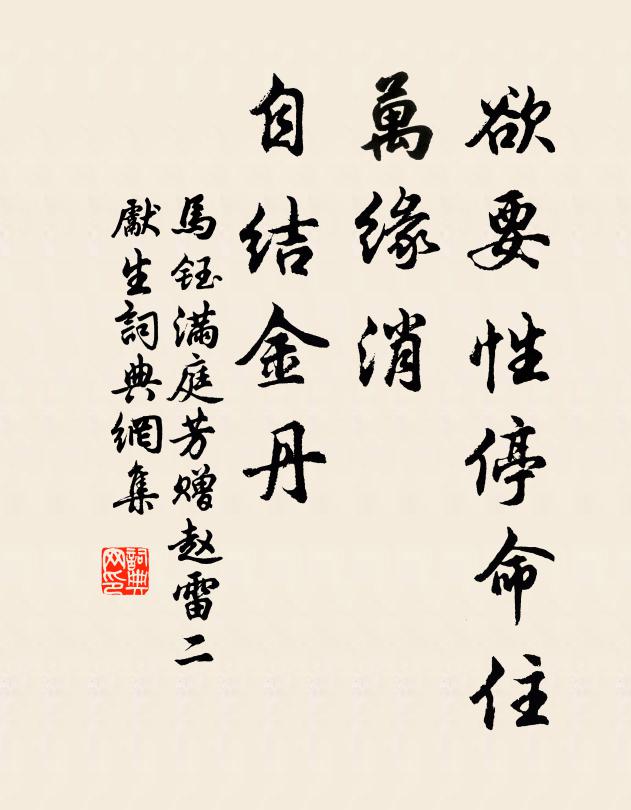 欲要性停命住
萬緣消
自结金丹
馬钰满庭芳赠赵雷二
獻生詞典網集
詞典网印